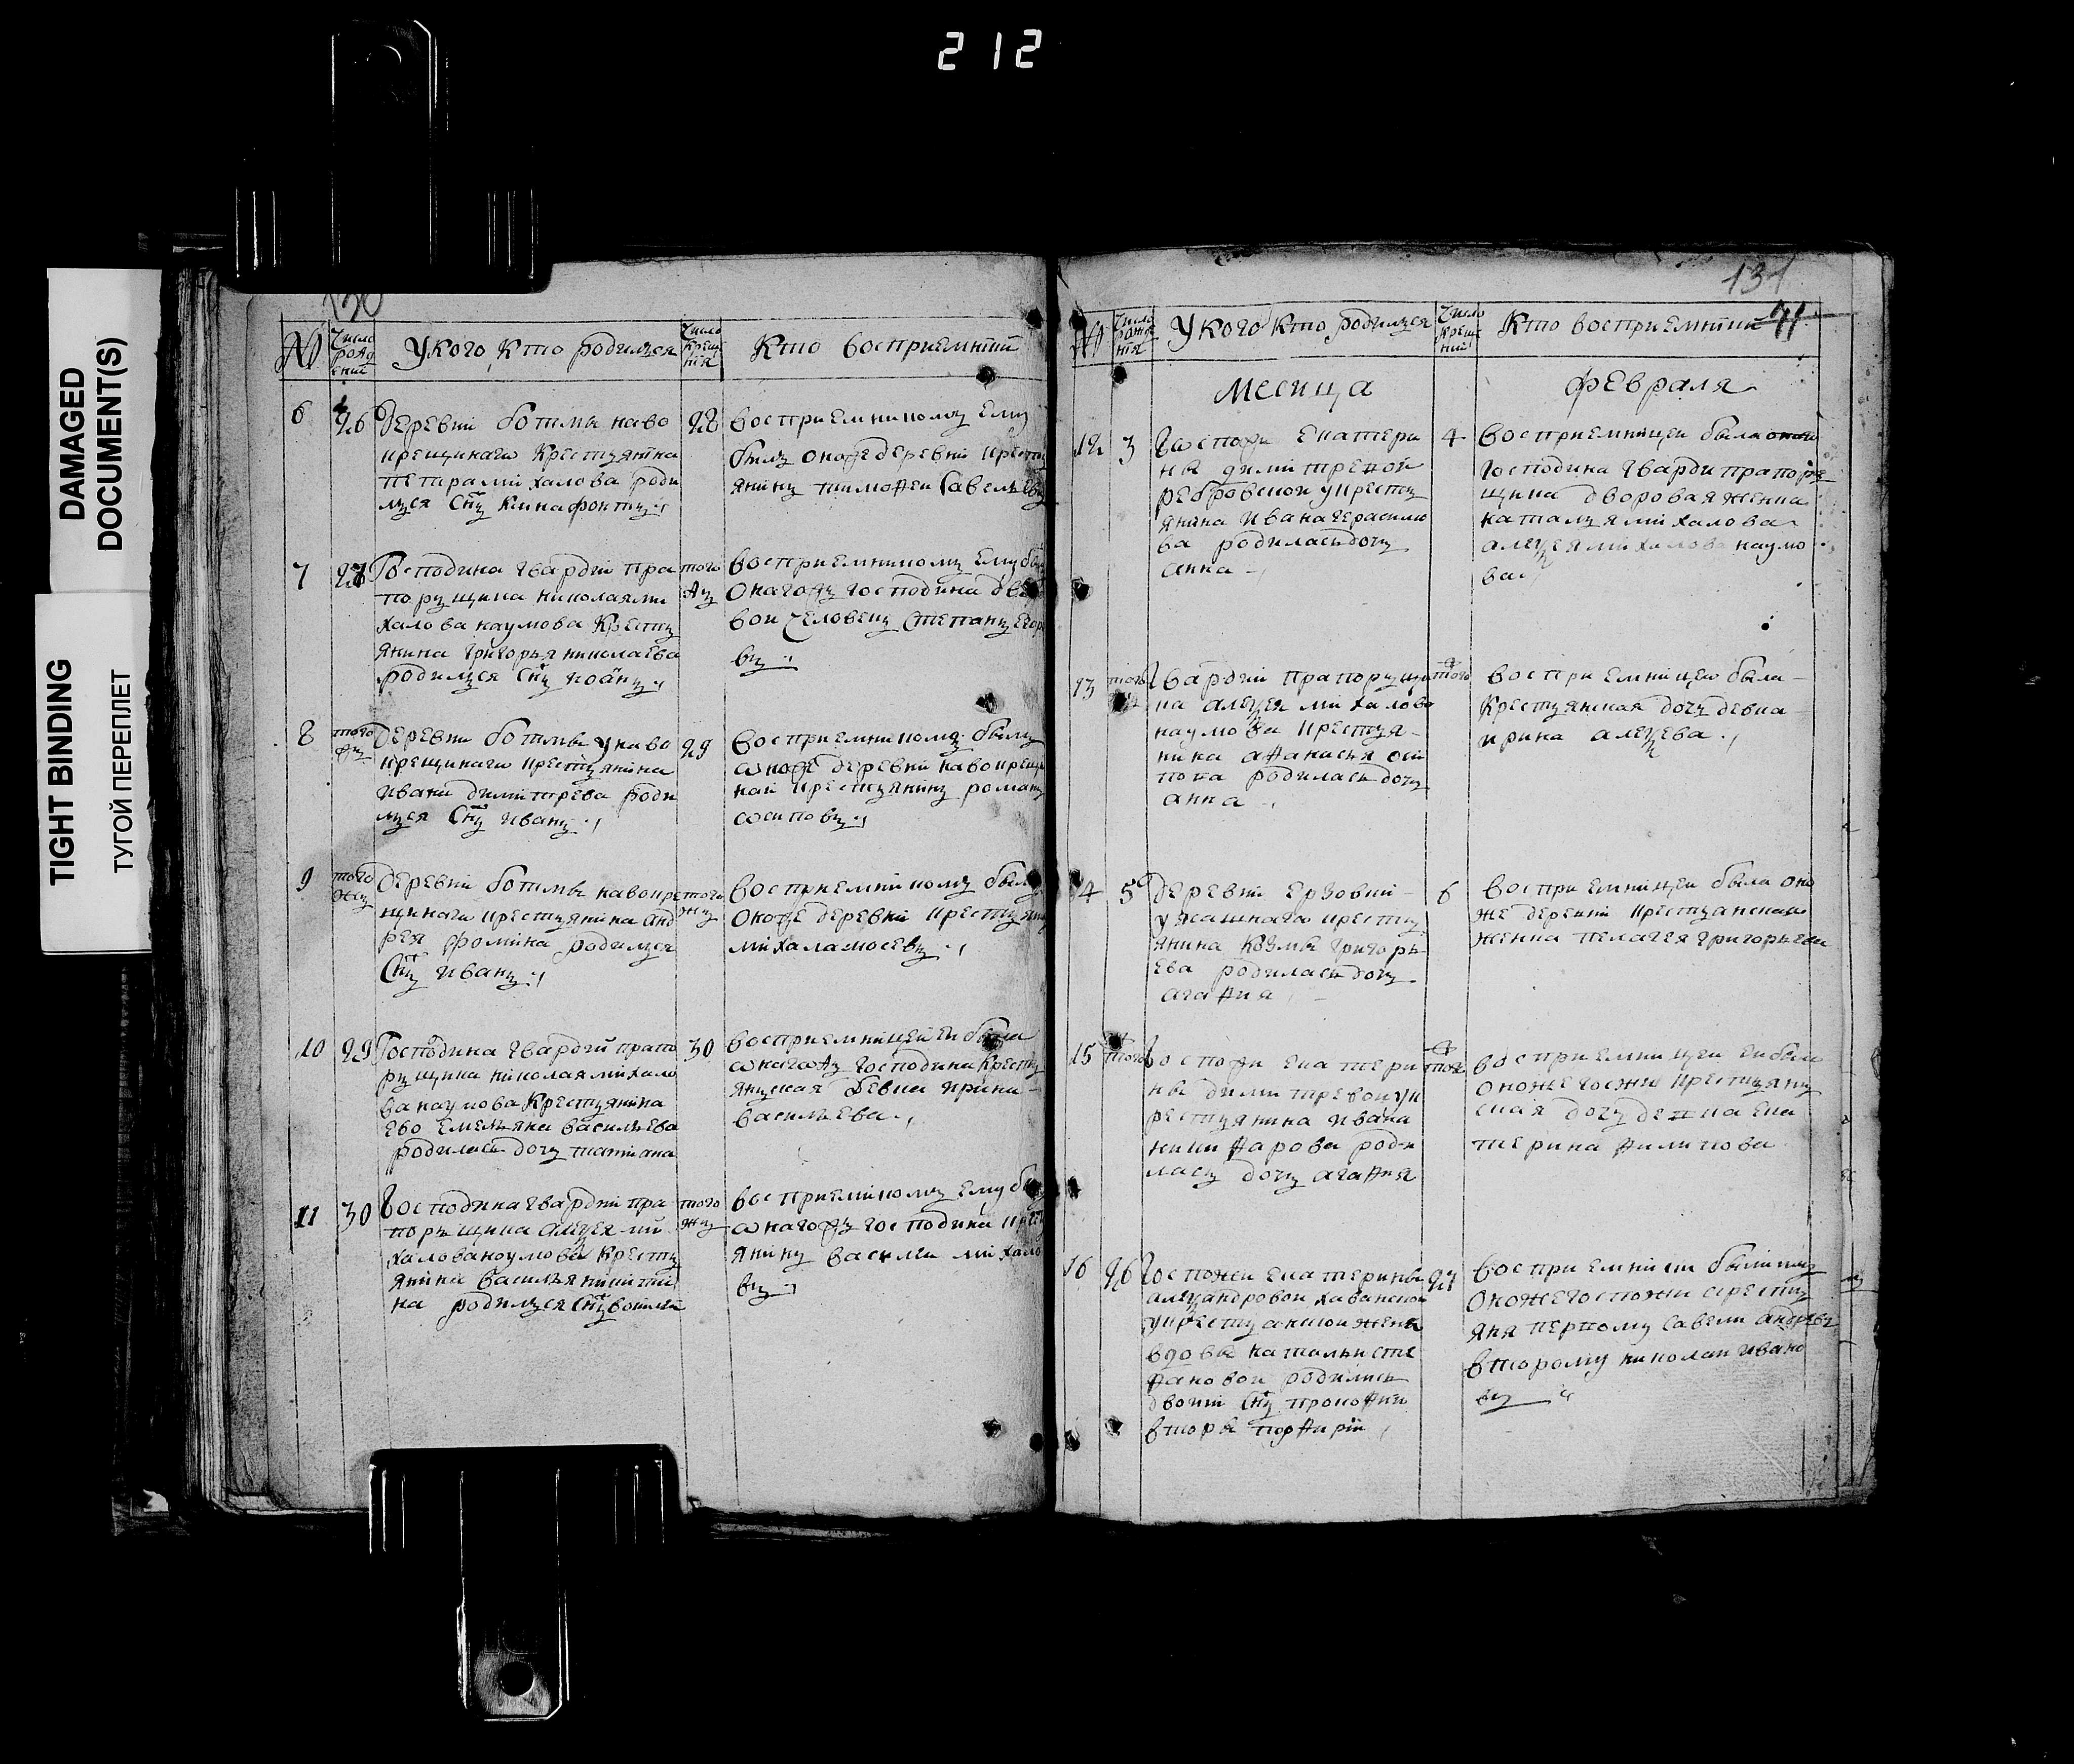 212
DAMAGED
DOCUMENT(S)
TIGHT BINDING
ТУГОЙ ПЕРЕПЛЕТ
130
№
Число рожд ении
У кого кто родился
Число креще нія
Кто восприемніи
6
26
28
деревни ботмы наво
крещинаго Крестьянина
петра міхалова роди
лъся Снъ Ксинафонтъ
восприемникомъ ему
былъ оноже деревни крестъ
янинъ тимофеи Савельевъ
7
27
того жъ
Господина гвардіи пра
порущика николая ми
халова наумова Крестъ
янина григорья николаева
родился Снъ иоанъ
восприемникомъ ему былъ
онагожъ господина дво
вои человекъ Степанъ Егоро
въ
8
того жъ
29
деревни ботмы у наво
крещинаго крестьянина
Ивана димитрева роди
лъся Снъ иванъ
восприемникомъ былъ
онаже деревни навокреще
наи крестьянинъ романъ
осиповъ
9
того жъ
того жъ
деревни ботмы навокре
щинаго крестьянина анд
рея фомина родился
Снъ иванъ
восприемникомъ былъ
оноже деревни крестьянинъ
міхала мосевъ
10
29
30
Господина гвардіи прапо
рущика николая міхало
ва наумова Крестьянина
ево Емельяна васильева
родилась дочь татиана
восприемницеи еи была
онагожъ господина крестъ
янъская девка ирина
васильева
11
30
того жъ
Господина гвардіи пра
порущика алеѯея ми
халова наумова Крестъ
янина василья никити
на родился Снъ
восприемникомъ ему былъ
онагожъ господина крестъ
янинъ василеи міхало
въ
131
71
№
Число рожде нія
У кого кто родился
Число креще нии
Кто восприемніи
месица
февраля
12
3
4
Госпожи Екатери
ны димитревой
ребровскои у крестъ
янина ивана герасимо
ва родилась дочь
анна
восприемницеи была
Господина гварди прапору
щика дворовая женка
наталья міхалова
алеѯея міхалова наумо
ва
13
того жъ
того
Гвардіи прапорущи
ка алеѯея михалова
наумова крестья
нина афанасья оси
пова родилась дочь
анна
восприемницеи была
Крестьянская дочь девка
ирина алеѯева
14
5
6
деревни ерзовки
у ясашнаго крестъ
янина козмы григорь
ева родилась дочь
агафия
восприемницеи была оно
же деревни крестьянская
женка пелагея григорьева
15
того
того
Госпожи екатери
ны димитревои у к
рестьянина ивана
никифарова роди
лась дочь агафия
восприемницеи еи была
оноже госжи крестьянъ
ская дочь девка ека
терина филипова
16
26
27
Госпожи екатерины
алеѯандровои хаванскои
у крестьянскои женки
вдовы натальи сте
фановои родились
двоини Снъ прокофии
вторы порфирїи
восприемники были имъ
оноже госпожи крестъ
яня первому Савели андревъ
второму николаи ивано
въ